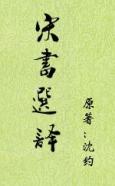 宋書選譯
原著：沈约